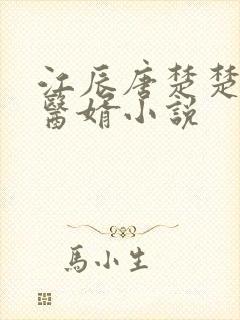 江辰唐楚楚
醫婿小説
馬小生